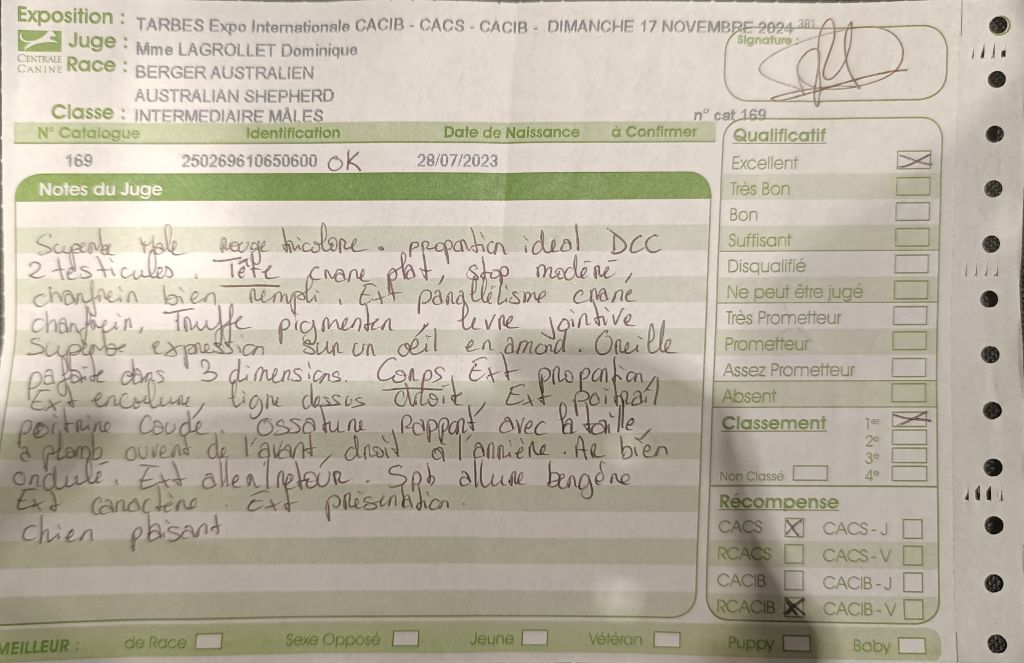 Exposition : TARBES Expo Internationale CACIB - CACS - CACIB - DIMANCHE 17 NOVEMBRE 2024 381
Juge : Mme LAGROLLET Dominique
CENTRALE CANINE
Race : BERGER AUSTRALIEN
AUSTRALIAN SHEPHERD
Classe : INTERMEDIAIRE MÂLES
Signature :
n° cat 169
N° Catalogue Identification Date de Naissance à Confirmer
169 250269610650600 OK 28/07/2023
Notes du Juge
Superbe Male rouge tricolore. proportion ideal DCC
2 testicules. Tête crane plat, stop modéré,
chanfrein bien rempli. Ext parallélisme crane
chanfrein, Truffe pigmenter, levre jointive
Superbe expression sur un oeil en amand. Oreille
dans 3 dimensions. Corps, Ext proportion,
Ext encolure, ligne dessus droit, Ext poitrail
poitrine coude. ossature rapport avec la taille,
a plomb ouvert de l'avant, droit a l'arrière. Ar bien
ondulé. Ext aller/retour. Spb allure bergère
Ext caractère. Ext présentation.
Chien plaisant
Qualificatif
Excellent
Très Bon
Bon
Suffisant
Disqualifié
Ne peut être jugé
Très Prometteur
Prometteur
Assez Prometteur
Absent
Classement 1er
2e
3e
Non Classé 4e
Récompense
CACS CACS-J
RCACS CACS-V
CACIB CACIB-J
RCACIB CACIB-V
MEILLEUR : de Race Sexe Opposé Jeune Vétéran Puppy Baby